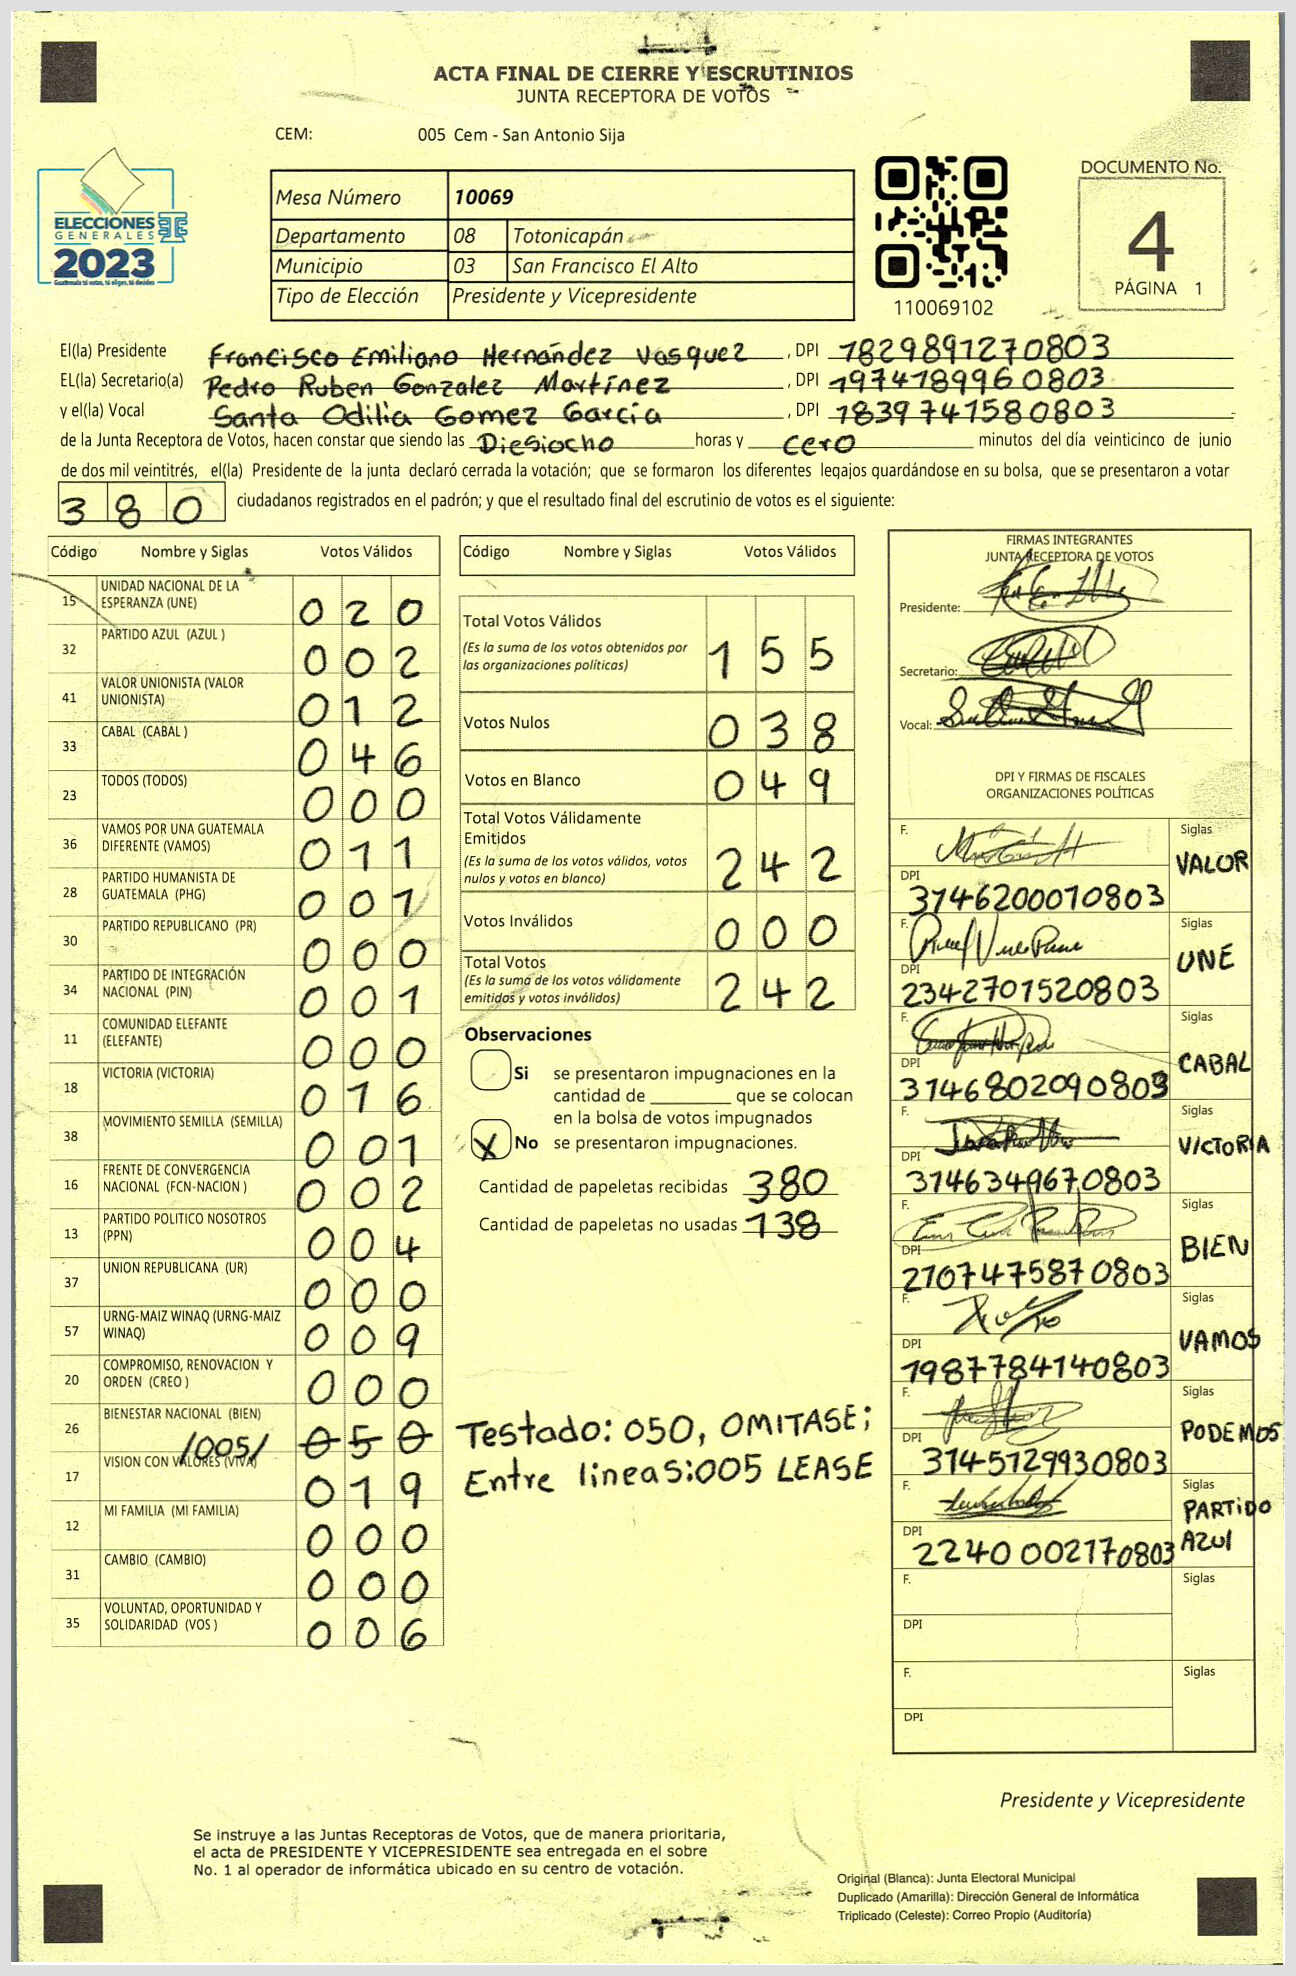 ACTA FINAL DE CIERRE Y ESCRUTINIOS
JUNTA RECEPTORA DE VOTOS
CEM: 005 Cem - San Antonio Sija
ELECCIONES
GENERALES
2023
Guatemala tú votas, tú eliges, tú decides
Mesa Número 10069
Departamento 08 Totonicapán
Municipio 03 San Francisco El Alto
Tipo de Elección Presidente y Vicepresidente
110069102
DOCUMENTO No.
4
PÁGINA 1
El(la) Presidente Francisco Emiliano Hernández Vasquez , DPI 1829891270803
EL(la) Secretario(a) Pedro Ruben Gonzalez Martínez , DPI 1974189960803
y el(la) Vocal Santa Odilia Gomez García , DPI 1839741580803
de la Junta Receptora de Votos, hacen constar que siendo las Diesiocho horas y cero minutos del día veinticinco de junio
de dos mil veintitrés, el(la) Presidente de la junta declaró cerrada la votación; que se formaron los diferentes legajos quardándose en su bolsa, que se presentaron a votar
380 ciudadanos registrados en el padrón; y que el resultado final del escrutinio de votos es el siguiente:
Código Nombre y Siglas Votos Válidos
15 UNIDAD NACIONAL DE LA ESPERANZA (UNE) 020
32 PARTIDO AZUL (AZUL ) 002
41 VALOR UNIONISTA (VALOR UNIONISTA) 012
33 CABAL (CABAL ) 046
23 TODOS (TODOS) 000
36 VAMOS POR UNA GUATEMALA DIFERENTE (VAMOS) 011
28 PARTIDO HUMANISTA DE GUATEMALA (PHG) 001
30 PARTIDO REPUBLICANO (PR) 000
34 PARTIDO DE INTEGRACIÓN NACIONAL (PIN) 001
11 COMUNIDAD ELEFANTE (ELEFANTE) 000
18 VICTORIA (VICTORIA) 016
38 MOVIMIENTO SEMILLA (SEMILLA) 001
16 FRENTE DE CONVERGENCIA NACIONAL (FCN-NACION ) 002
13 PARTIDO POLITICO NOSOTROS (PPN) 004
37 UNION REPUBLICANA (UR) 000
57 URNG-MAIZ WINAQ (URNG-MAIZ WINAQ) 009
20 COMPROMISO, RENOVACION Y ORDEN (CREO ) 000
26 BIENESTAR NACIONAL (BIEN) /005/ 050
17 VISION CON VALORES (VIVA) 019
12 MI FAMILIA (MI FAMILIA) 000
31 CAMBIO (CAMBIO) 000
35 VOLUNTAD, OPORTUNIDAD Y SOLIDARIDAD (VOS ) 006
Código Nombre y Siglas Votos Válidos
Total Votos Válidos
(Es la suma de los votos obtenidos por
las organizaciones politicas) 155
Votos Nulos 038
Votos en Blanco 049
Total Votos Válidamente
Emitidos
(Es la suma de los votos válidos, votos
nulos y votos en blanco) 242
Votos Inválidos 000
Total Votos
(Es la suma de los votos válidamente
emitidos y votos inválidos) 242
Observaciones
Si se presentaron impugnaciones en la
cantidad de ________ que se colocan
en la bolsa de votos impugnados
X No se presentaron impugnaciones.
Cantidad de papeletas recibidas 380
Cantidad de papeletas no usadas 138
Testado: 050, OMITASE;
Entre lineas:005 LEASE
FIRMAS INTEGRANTES
JUNTA RECEPTORA DE VOTOS
Presidente:
Secretario:
Vocal:
DPI Y FIRMAS DE FISCALES
ORGANIZACIONES POLÍTICAS
F. Siglas VALOR
DPI 3146200010803
F. Siglas UNE
DPI 2342701520803
F. Siglas CABAL
DPI 3146802090803
F. Siglas VICTORIA
DPI 3146349670803
F. Siglas BIEN
DPI 2107475870803
F. Siglas VAMOS
DPI 1987784140803
F. Siglas PODEMOS
DPI 3145129930803
F. Siglas PARTIDO AZUl
DPI 2240002170803
F. Siglas
DPI
F. Siglas
DPI
Presidente y Vicepresidente
Se instruye a las Juntas Receptoras de Votos, que de manera prioritaria,
el acta de PRESIDENTE Y VICEPRESIDENTE sea entregada en el sobre
No. 1 al operador de informática ubicado en su centro de votación.
Original (Blanca): Junta Electoral Municipal
Duplicado (Amarilla): Dirección General de Informática
Triplicado (Celeste): Correo Propio (Auditoría)